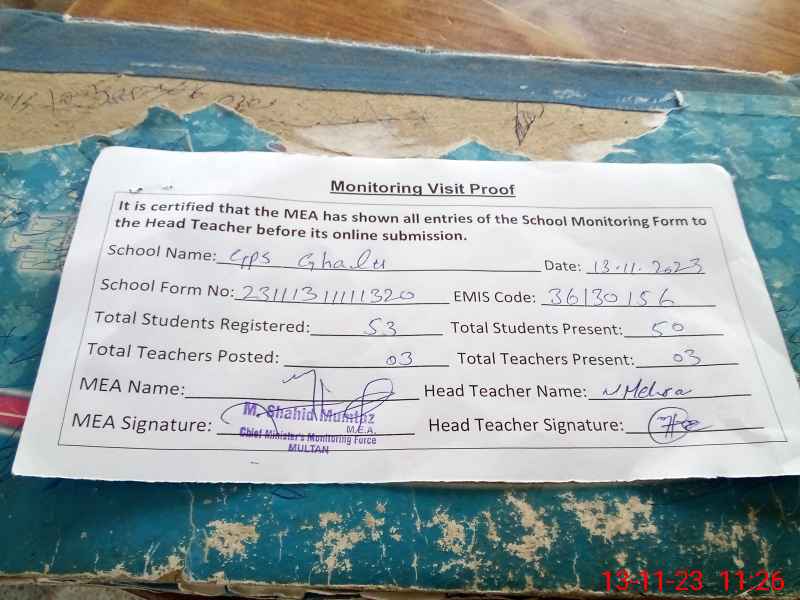 Monitoring Visit Proof
It is certified that the MEA has shown all entries of the School Monitoring Form to
the Head Teacher before its online submission.
School Name: GPS Ghalu Date: 13.11.2023
School Form No: 23111311111320 EMIS Code: 36130156
Total Students Registered: 53 Total Students Present: 50
Total Teachers Posted: 03 Total Teachers Present: 03
MEA Name: Head Teacher Name:
M. Shahid Mumtaz
M.E.A.
MEA Signature: Head Teacher Signature:
Chief Minister's Monitoring Force
MULTAN
13-11-23 11:26